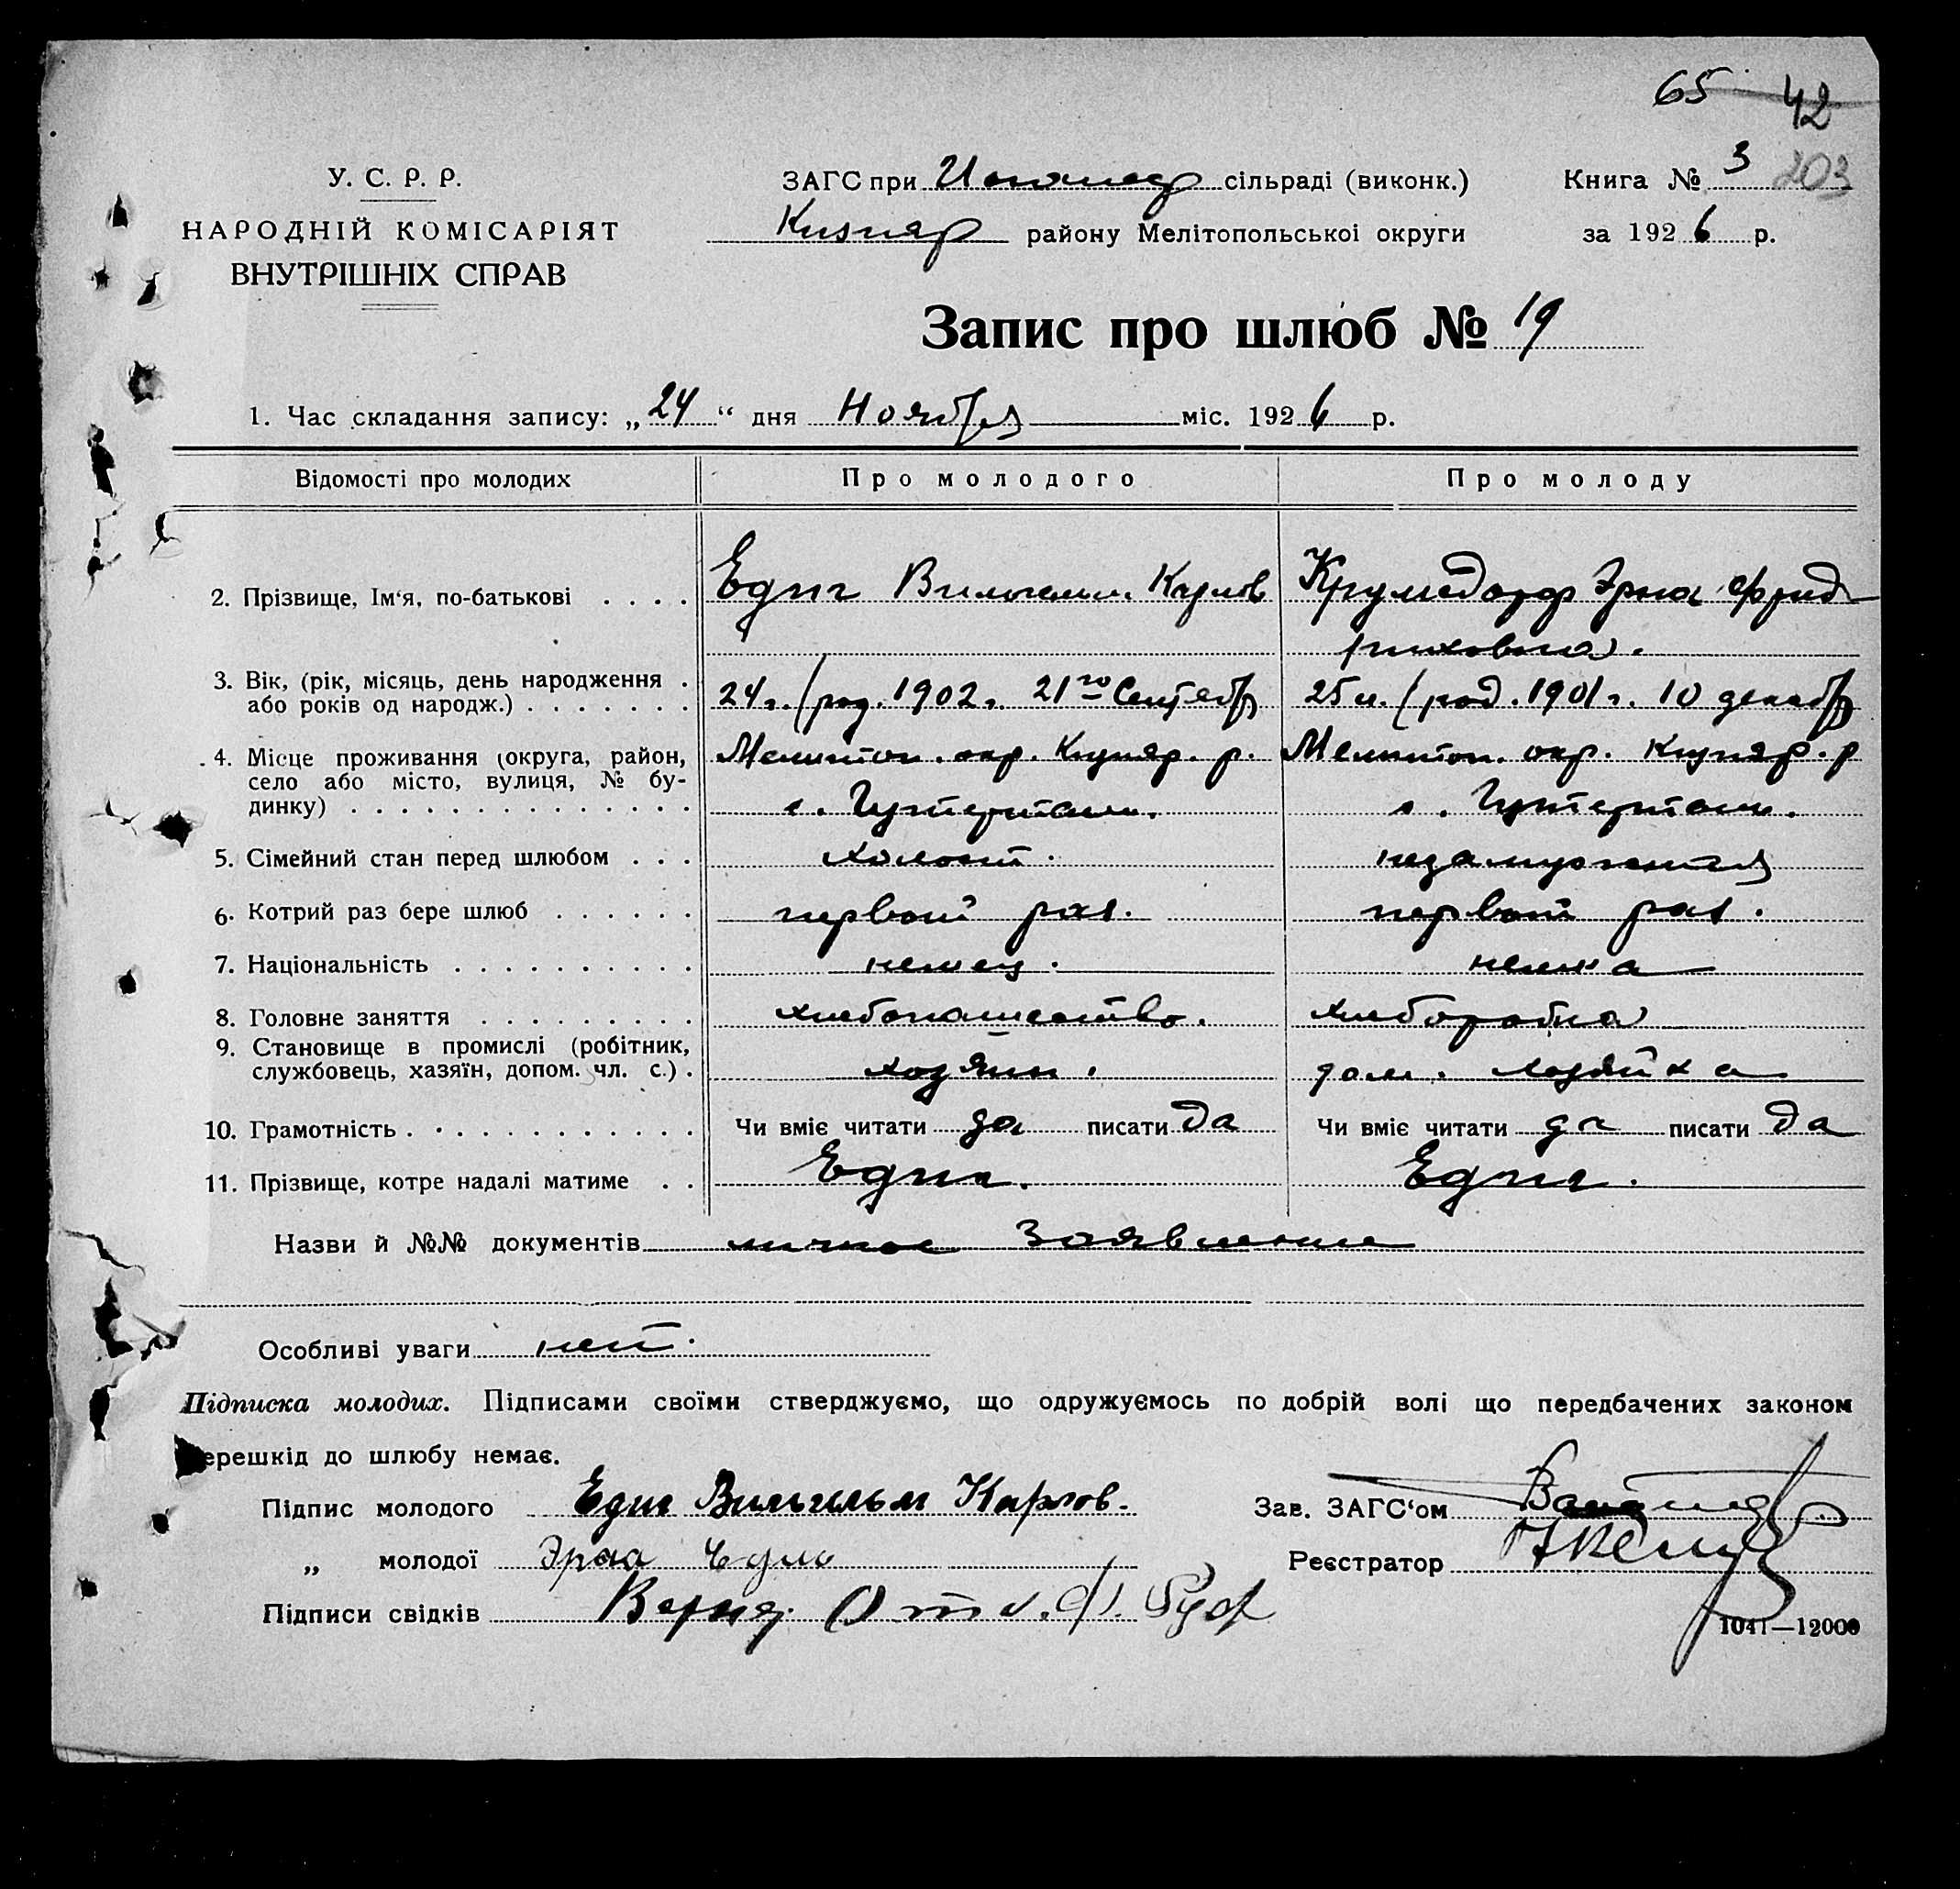 65 42
У. С. Р. Р. ЗАГС при сільраді (виконк.) Книга № 3 203
НАРОДНІЙ КОМІСАРІЯТ району Мелітопольської округи за 1926 р.
ВНУТРІШНІХ СПРАВ
Запис про шлюб № 19
1. Час складання запису: „24“ дня Ноября міс. 1926 р.
Відомості про молодих Про молодого Про молоду
2. Прізвище, Ім‘я, по-батькові . . . . Едиг Вильгельм Карлов Крумсдорф Эрна Фрид-
риховна.
3. Вік, (рік, місяць, день народження . або років од народж.) . . . . . . . 24 г. (род. 1902 г. 21го Сентябр 25 л. (род. 1901 г. 10 декабр
4. Місце проживання (округа, район, Мелитоп. окр. р. Мелитоп. окр. р
село або місто, вулиця, № бу-
динку) . . . . . . . . . . . . . . с. Гутерталь. с. Гутерталь.
5. Сімейний стан перед шлюбом . . . холост. незамужняя
6. Котрий раз бере шлюб . . . . . . первый раз. первый раз.
7. Національність . . . . . . . . . . немец. немка
8. Головне заняття . . . . . . . . . хлебопашество. хлеборобка
9. Становище в промислі (робітник,
службовець, хазяїн, допом. чл. с.) . хозяин. дом. хозяйка
10. Грамотність . . . . . . . . . . . . Чи вміє читати да писати да Чи вміє читати да писати да
11. Прізвище, котре надалі матиме . . Едиг. Едиг.
Назви й №№ документів личное Заявление
Особливі уваги нет.
Підписка молодих. Підписами своїми стверджуємо, що одружуємось по добрій волі що передбачених законом
ерешкід до шлюбу немає.
Підпис молодого Едиг Вильгельм Карлов. Зав. ЗАГС‘ом
„ молодої Эрна Едиг Реєстратор
Підписи свідків
1041—12000